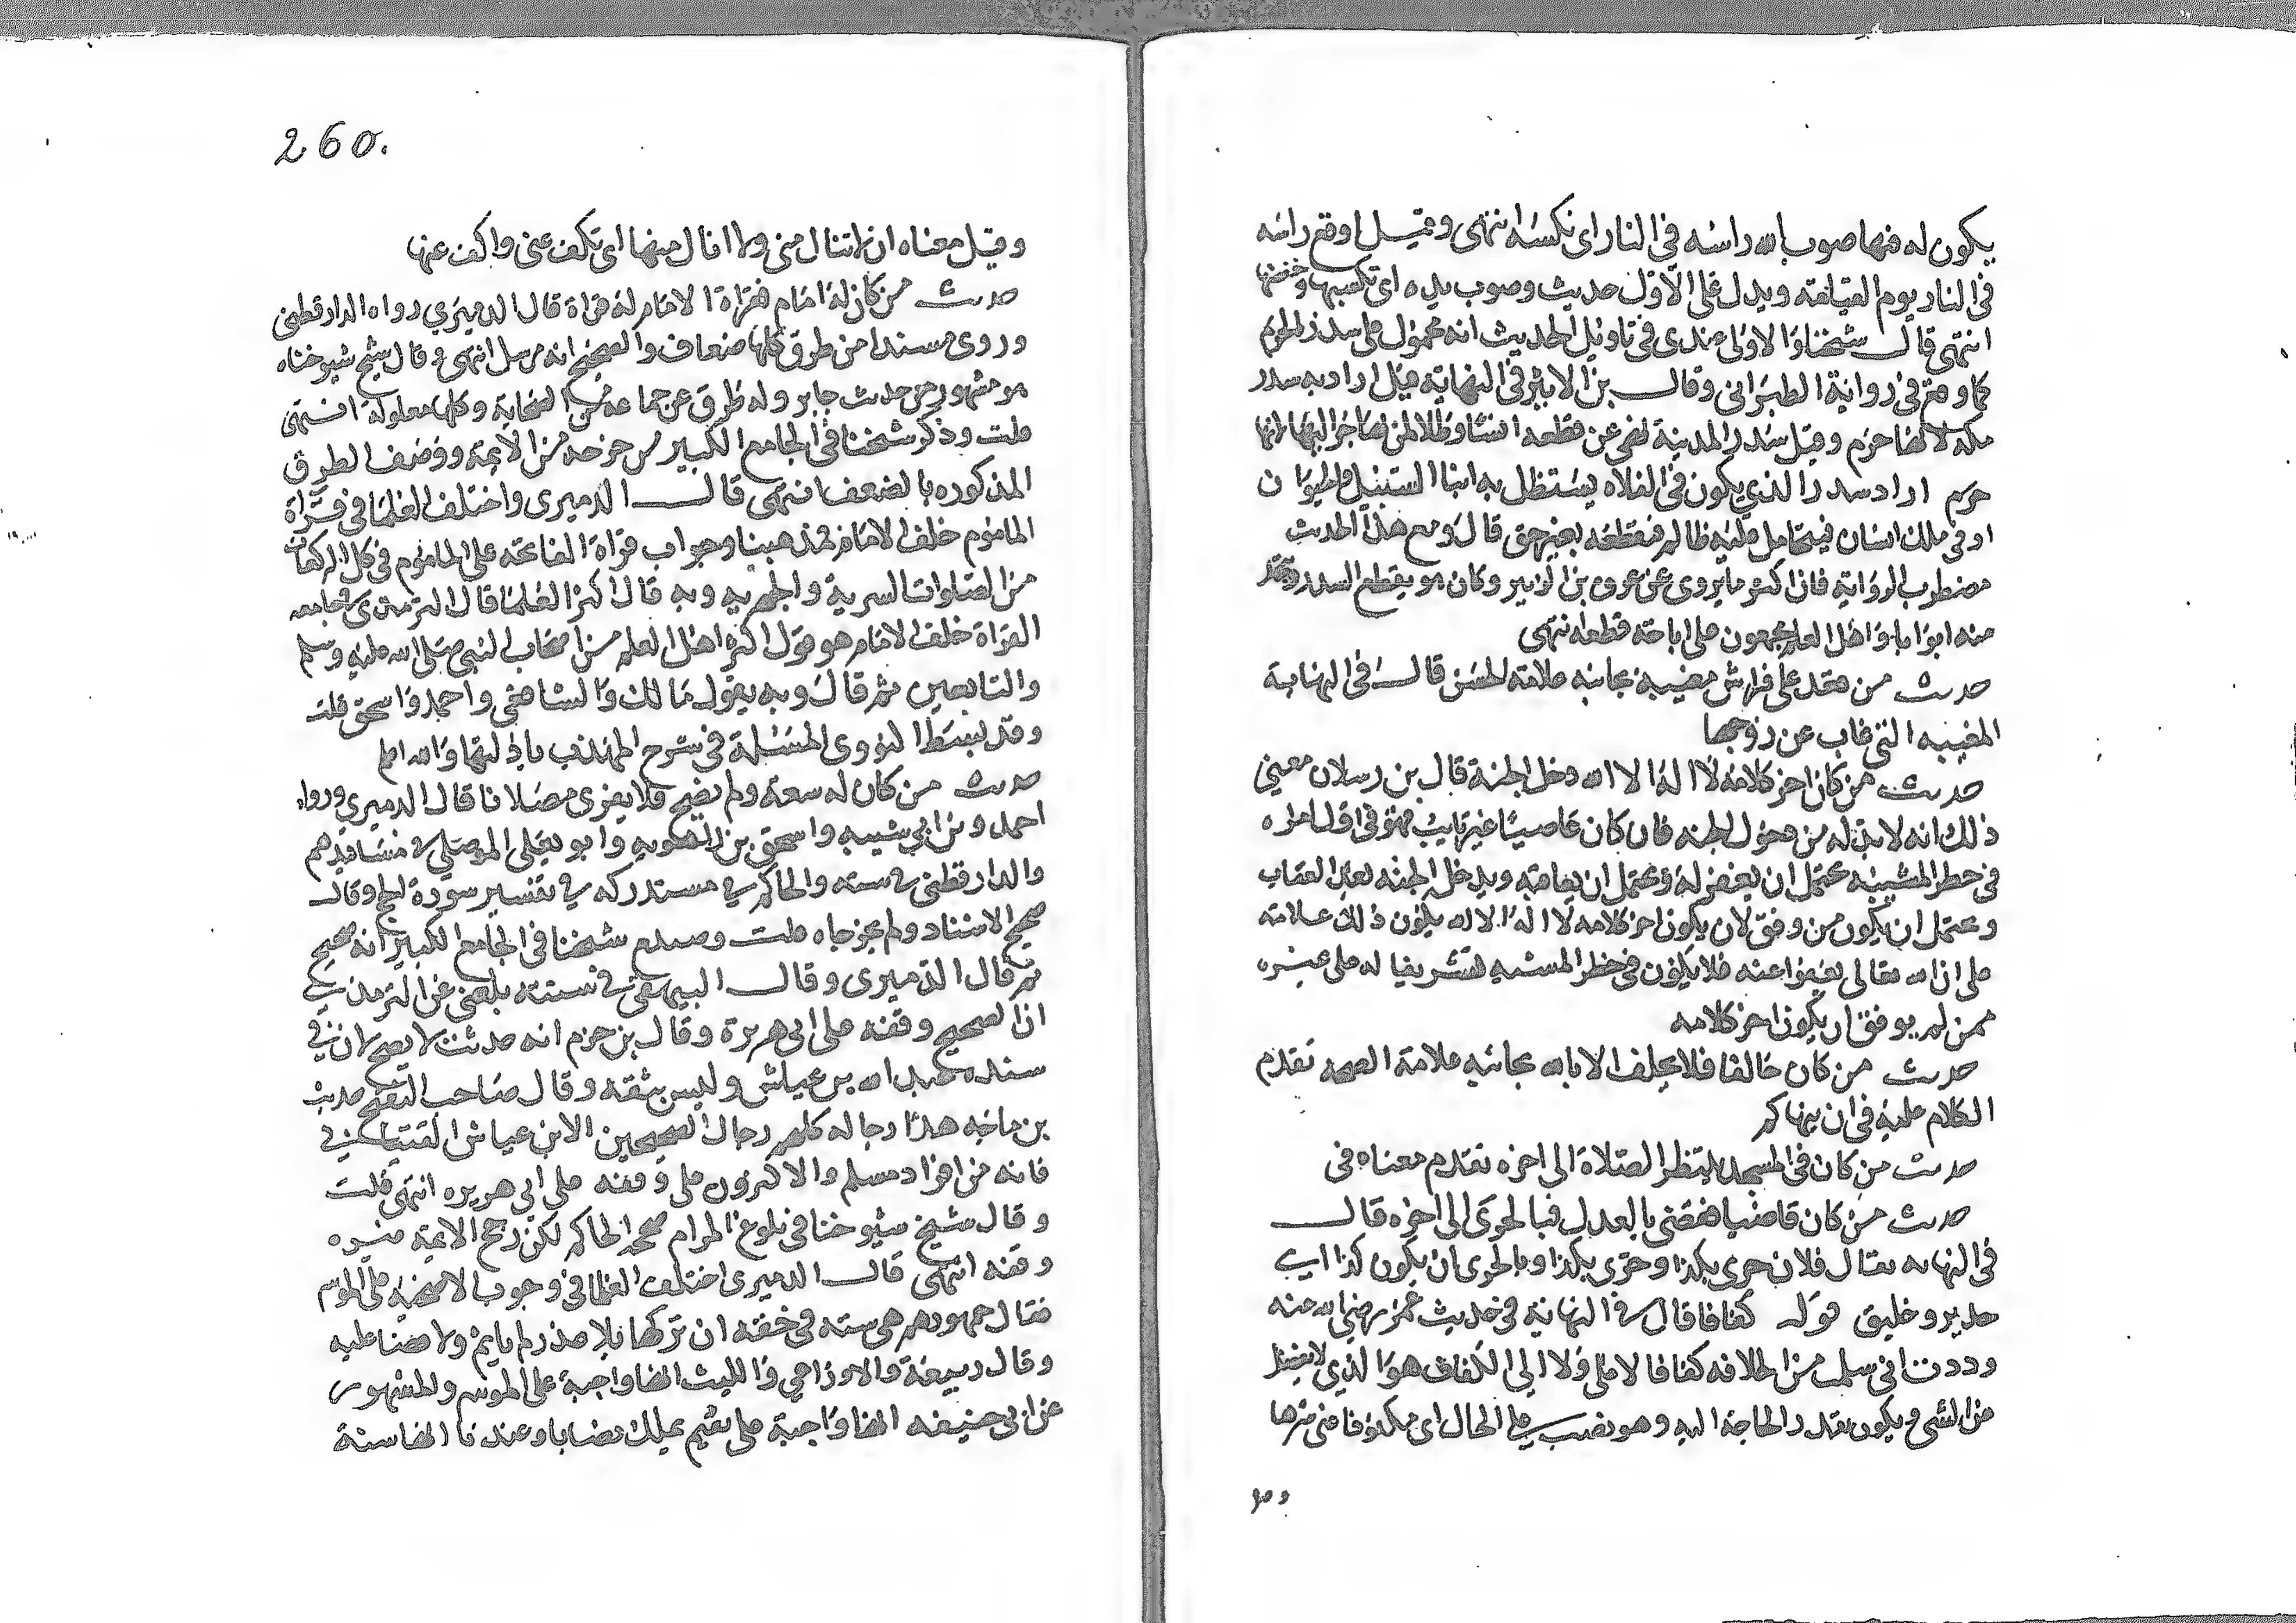 يكون له فيها صوب الله راسه في النار اى نكسه انتهى وقيل اوقع راسه
في النار يوم القيامة ويدل على الاول حديث وصوب يده اى نكسها وخفضها
انتهى قال شيخنا والاولى عندى في تاويل الحديث انه محمول على سدر الحرم
كما وقع في رواية الطبراني وقال بن الاثير في النهاية قيل اراد به سدر
مكه لانها حرم وقيل سدر المدينة نهى عن قطعه انسا وظلا لمن يهاجر اليها لانها
حرم اراد سدر الذي يكون في الفلاه يستظل به ابنا السبيل والحيوان
او في ملك انسان فيتحامل عليه ظالم فيقطعه بغير حق قال ومع هذا الحديث
مضطرب الرواية فان اكثر ما يروى عن عروه بن الزبير وكان هو يقطع السدر ويتخذ
منه ابوابا واهل العلم مجمعون على اباحة قطعه انتهى
حديث من قعد على فراش مغيبة بجانبه علامة الحسن قال في النهاية
المغيبه التي غاب عن زوجها
حديث من كان اخر كلامه لا اله الا الله دخل الجنة قال بن رسلان معنى
ذلك انه لابد له من دخول الجنه فان كان عاصيا غير تايب فهو في اول امره
في خطر المشيئه يحتمل ان يغفر له ويحتمل ان يعاقبه ويدخل الجنه بعد العقاب
ويحتمل ان يكون من وفق لان يكون اخر كلامه لا اله الا الله يكون ذلك علامة
على ان الله تعالى يعفوا عنه فلا يكون في خطر المشيه تشريفا له على غيره
ممن لم يوفق ان يكون اخر كلامه
حديث من كان حالفا فلا يحلف الا بالله بجانبه علامة الصحة تقدم
الكلام عليه في ان ينهاكم
حديث من كان في المسجد ينتظر الصلاة الى اخره تقدم معناه في
حديث من كان قاضيا فقضى بالعدل فبالحرى الى اخره قال
في النهايه يقال فلان حرى بكذا وحرى بكذا وبالحرى ان يكون كذا اي
جدير وخليق قوله كفافا قال في النهاية في حديث عمر رضي الله عنه
وددت اني سلمت من الخلافه كفافا لا علي ولا لي الكفاف هو الذي لا يفضل
من الشى ويكون بقدر الحاجة اليه وهو نصب على الحال اى مكفوفا عني شرها
وقيل
وقيل معناه ان لا تنال مني ولا انال منها اى تكف عني واكف عنها
حديث من كان له امام فقراة الامام له قراة قال الدميري رواه الدارقطني
وروى مسندا من طرق كلها ضعاف والصحيح انه مرسل انتهى وقال شيخ شيوخنا
هو مشهور من حديث جابر وله طرق عن جماعة من الصحابة وكلها معلولة انتهى
قلت وذكر شيخنا في الجامع الكبير من خرجه من الايمة ووصف الطرق
المذكوره بالضعف انتهى قال الدميرى واختلف العلما في قراة
الماموم خلف الامام فمذهبنا وجوب قراة الفاتحة على الماموم في كل الركعات
من الصلوات السرية والجهريه وبه قال اكثر العلما قال الترمذى في جامعه
القراة خلف الامام هو قول اكثر اهل العلم من اصحاب النبي صلى الله عليه وسلم
والتابعين ثم قال وبه يقول مالك والشافعي واحمد واسحق قلت
وقد بسط النووى المسئلة في شرح المهذب بادلتها والله اعلم
حديث من كان له سعة ولم يضح فلا يقربن مصلانا قال الدميري ورواه
احمد وبن ابي شيبه واسحق بن راهويه وابو يعلى الموصلي في مسانيدهم
والدارقطني في سننه والحاكم في مستدركه في تفسير سورة الحج وقال
صحيح الاسناد ولم يخرجاه قلت شيخنا في الجامع الكبير انه صحيح
ثم قال الدميرى وقال البيهقي في سننه بلغني عن الترمذي
ان الصحيح وقفه على ابى هريرة وقال بن حزم انه حديث لا يصح لان في
سنده عبد الله بن عياش وليس بثقه وقال صاحب التنقيح حديث
بن ماجه هذا رجاله كلهم رجال الصحيحين الا بن عياش القتباني
فانه من افراد مسلم والاكثرون على وقفه على ابي هريره انتهى قلت
وقال شيخ شيوخنا في بلوغ المرام صححه الحاكم لكن رجح الايمة غيره
وقفه انتهى قال الدميرى اختلف العلما في وجوب الاضحيه على الموسر
فقال جمهورهم هي سنه في حقه ان تركها بلا عذر لم ياثم ولا قضا عليه
وقال ربيعة والاوزاعي والليث انها واجبة على الموسر والمشهور
عن ابي حنيفه انها واجبة على مقيم يملك نصابا وعندنا انها سنة
260.